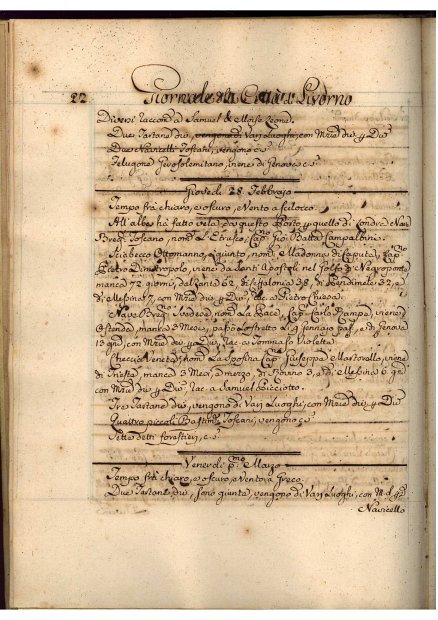 22 Giornale della Città di Livorno
Diversi raccom.a Samuel & Moise Leone.
Due Tartane div. vengono di Vari Luoghi, con M.rie div. p. Div.
Due Navicelli Toscani, vengono c.s
Pelugone Gerosolemitano, viene di Genova c.s
Giovedì 28 Febbrajo
Tempo frà chiaro, e oscuro, Vento a scilocco.
All'alba hà fatto vela da questo Porto p. quello di Londra Nav.
Brig.o Toscano, nom.o L'Etrusco; Cap.no Gio: Batta Campalbini.
Sciabecco Ottomanno, giunto, nom.o Madonna di Caputa, Cap.no
Pietro Dimitropolo, viene da Santi Apostoli nel Golfo di Negroponte
manca 72 giorni, dal Zante 62, di Ceffalonia 58, di 32, e
di Messina 7, con M.rie div. p. Div., rac. a Pietro Chiesa.
Nave Brig.o Svedese nom.o La Pace, Cap. Carlo Pampe, viene,
Ostenda, manca 3 Mesi, passò lo stretto li 9 gennajo pas., e di Genova
13 gni, con M.rie div. p. Div. rac. a Tommaso Violetta
Checcia Veneta, nom.o La Sposina Cap. Giuseppe Martovallo, viene
di Trieste, manca 3 Mesi, e mezzo, di 3, e di Messina 6 gni
con M.rie div. p. Div. rac. a Samuel
Tre Tartane div. vengono di Vari Luoghi, con M.rie div. p. Div.
Quattro piccoli Bastim.ti Toscani, vengono c.s
Sette detti forastieri, c.s
Venerdì p.mo Marzo
Tempo frà chiaro, e oscuro, e Vento a Greco
Due Tartane div. sono giunte, vengono di Vari Luoghi, con M. d. p. D.
Navicello